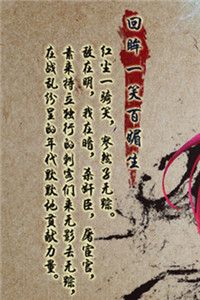 回眸一笑百媚生
红尘一骑笑，寥然了无踪。
敌在明，我在暗，杀奸臣，屠宦官，
素来特立独行的刺客们来无影去无踪，
在战乱纷呈的年代默默地贡献力量。